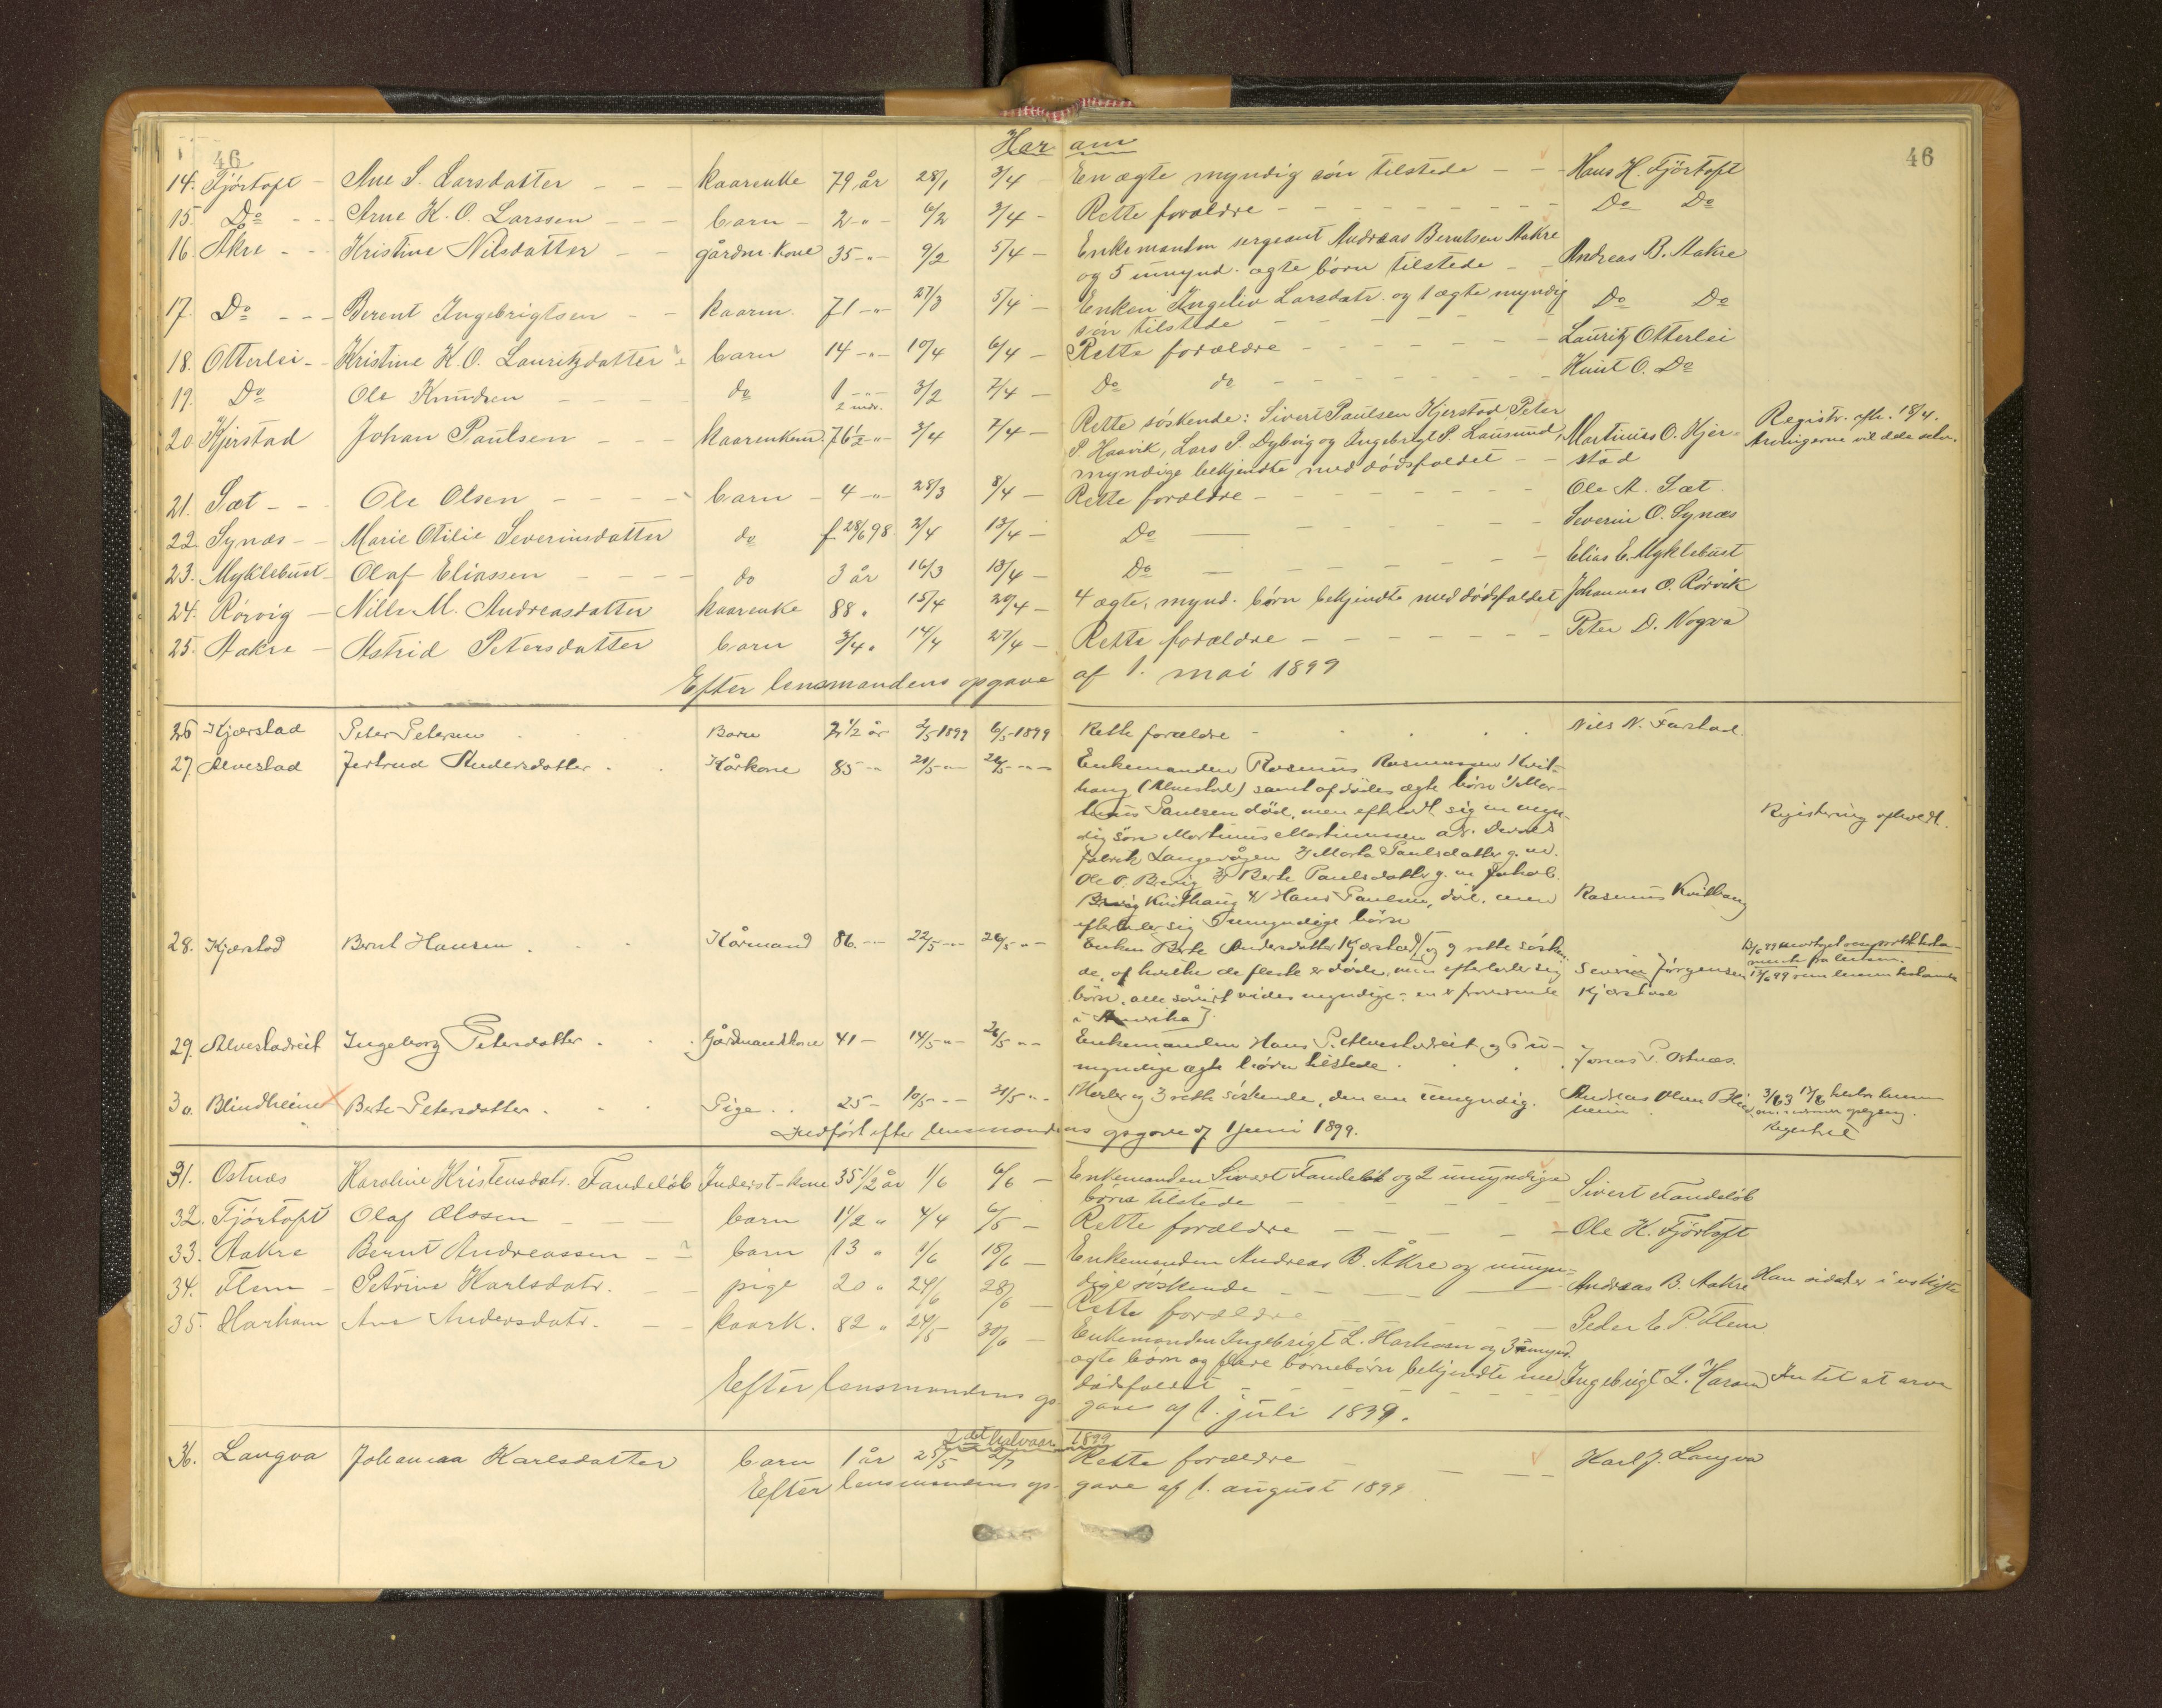 46
Haram
46
14. Fjörtoft - Ane S. Larsdatter - - - kaarenke 79 år 28/1 3/4 - En ægte myndig sön tilstede - - - Hans H. Fjörtoft
15. Do - - - Arne K. O. Larssen - - - barn - 2 -"- 6/2 3/4 - Rette forældre - - - - - Do Do
16. Åkre - - - Kristine Nilsdatter - - gårdm. kone 35 -"- 9/2 5/4 - Enkemanden sergeant Andreas Berntsen Aakre
og 5 umynd. ægte börn tilstede - - Andreas B. Aakre
17. Do - - - Berent Ingebrigtsen - - kaarm. 71 -"- 27/3 5/4 - Enken Ingeliv Larsdatr. og 1 ægte myndig Do Do
sön tilstede - - - - -
18. Otterlei - - Kristine K. O. Lauritzdatter barn 14 -"- 10/4 6/4 - Rette forældre - - - - - Lauritz Otterlei
19. Do Ole Knudsen - - - - do 1 -"- 2 mdr. 3/2 7/4 - Do do - - - - Knut O. Do
20. Kjerstad Johan Paulsen - - - kaarenkem. 76 1/2 -"- 3/4 7/4 - Rette söskende: Sivert Paulsen Kjerstad Peter
P. Haavik, Lars P. Dybvig og Ingebrigt P. Lausund, Martinus O. Kjer-
myndige bekjendte med dödsfaldet - - stad
Registr. afh. 18/4.
Arvingerne vil dele selv.
21. Sæt - - Ole Olsen - - - - barn - 4 -"- 28/3 8/4 - Rette forældre - - - - - Ole A. Sæt
22. Synæs - - Marie Otilie Severinsdatter do f. 28/6 98 2/4 13/4 - Do - - - - Severin O. Synæs
23. Myklebust - Olaf Eliassen - - - - do 3 år 16/3 13/4 - Do - - - - Elias E. Myklebust
24. Rörvig - Nille M. Andreasdatter kaarenke 88 " 15/4 20/4 - 4 ægte, mynd. börn bekjendte med dödsfaldet Johannes O. Rörvik
25. Aakre - Astrid Petersdatter barn 3/4 " 14/4 27/4 - Rette forældre - - - - - Peter D. Nogva
Efter lensmandens opgave af 1. mai 1899
26 Kjærstad Peter Petersen Barn 2 1/2 år 2/5 1899 6/5 1899 Rette forældre - Nils N. Farstad.
27. Alvestad Jertrud Andersdatter. Kårkone 85 -"- 21/5 -"- 26/5 -"- Enkemanden Rasmus Rasmussen Kvit-
haug (Alvestad) samt afdödes ægte börn 1/ Mar-
tinus Paulsen död, men efterladt sig en myn-
dig sön Martinus Martinussen
fabrik Langevågen 2/ Marta Paulsdatter g. m.
Ole O. Brevig 3/ Berte Paulsdatter g. m. Jakob
Kvithaug 4/ Hans Paulsen, död, men Rasmus Kvithaug
efterlader sig umyndige börn
Registrering afholdt.
28. Kjærstad Bernt Hansen. Kårmand 86 -"- 22/5 -"- 26/5 -"- Enken Berte Andersdatter Kjærstad [og 9 rette sösken-
de, af hvilke de fleste er döde, men efterlader sig Severin Jørgensen
börn, alle såvidt vides myndige; en er fraværende Kjærstad
i Amerika]
29. Alvestadreit Ingeborg Petersdatter. Gårdmandskone 41 - 14/5 -"- 26/5 -"- Enkemanden Hans P. Alvestadreit og 6 u-
myndige ægte börn tilstede. Jonas P. Ostnæs.
30. Blindheim Berte Petersdatter. Pige 25 - 10/5 -"- 31/5 -"- Moder og 3 rette söskende, den ene umyndig. Andreas Olsen Blind-
heim
Registrert
Indfört efter lensmandens opgave af 1 juni 1899.
31. Ostnæs Karoline Kristensdatr. Fandelöb Inderst-kone 35 1/2 år 1/6 6/6 - Enkemanden Sivert Fandelöb og 2 umyndige
börn tilstede - - - - Sivert Fandelöb
32. Fjörtoft Olaf Olssen - barn 1 1/2 " 4/4 6/5 - Rette forældre - - - - - Ole K. Fjörtoft
33. Aakre Bernt Andreassen - barn 13 " 1/6 18/6 - Enkemanden Andreas B. Åkre og umyn-
dige söskende - - - - Andreas B. Aakre Han sidder i uskifte
34. Flem - Petrine Karlsdatr. - - pige 20 " 24/6 28/6 - Rette forældre - - - Peder E. P. Flem
35. Harham Ane Andersdatr. - - kaark. 82 " 24/5 30/6 - Enkemanden Ingebrigt L. Harham og 3 mynd.
ægte börn og flere börnebörn bekjendte med Ingebrigt L. Haram Intet at arve
dödsfaldet - - - -
Efter lensmandens opgave af 1. juli 1899.
2det halvaar 1899
36. Langva Johanna Karlsdatter barn 1 år 25/5 2/7 Rette forældre - - - Karl J. Langva
Efter lensmandens opgave af 1. august 1899